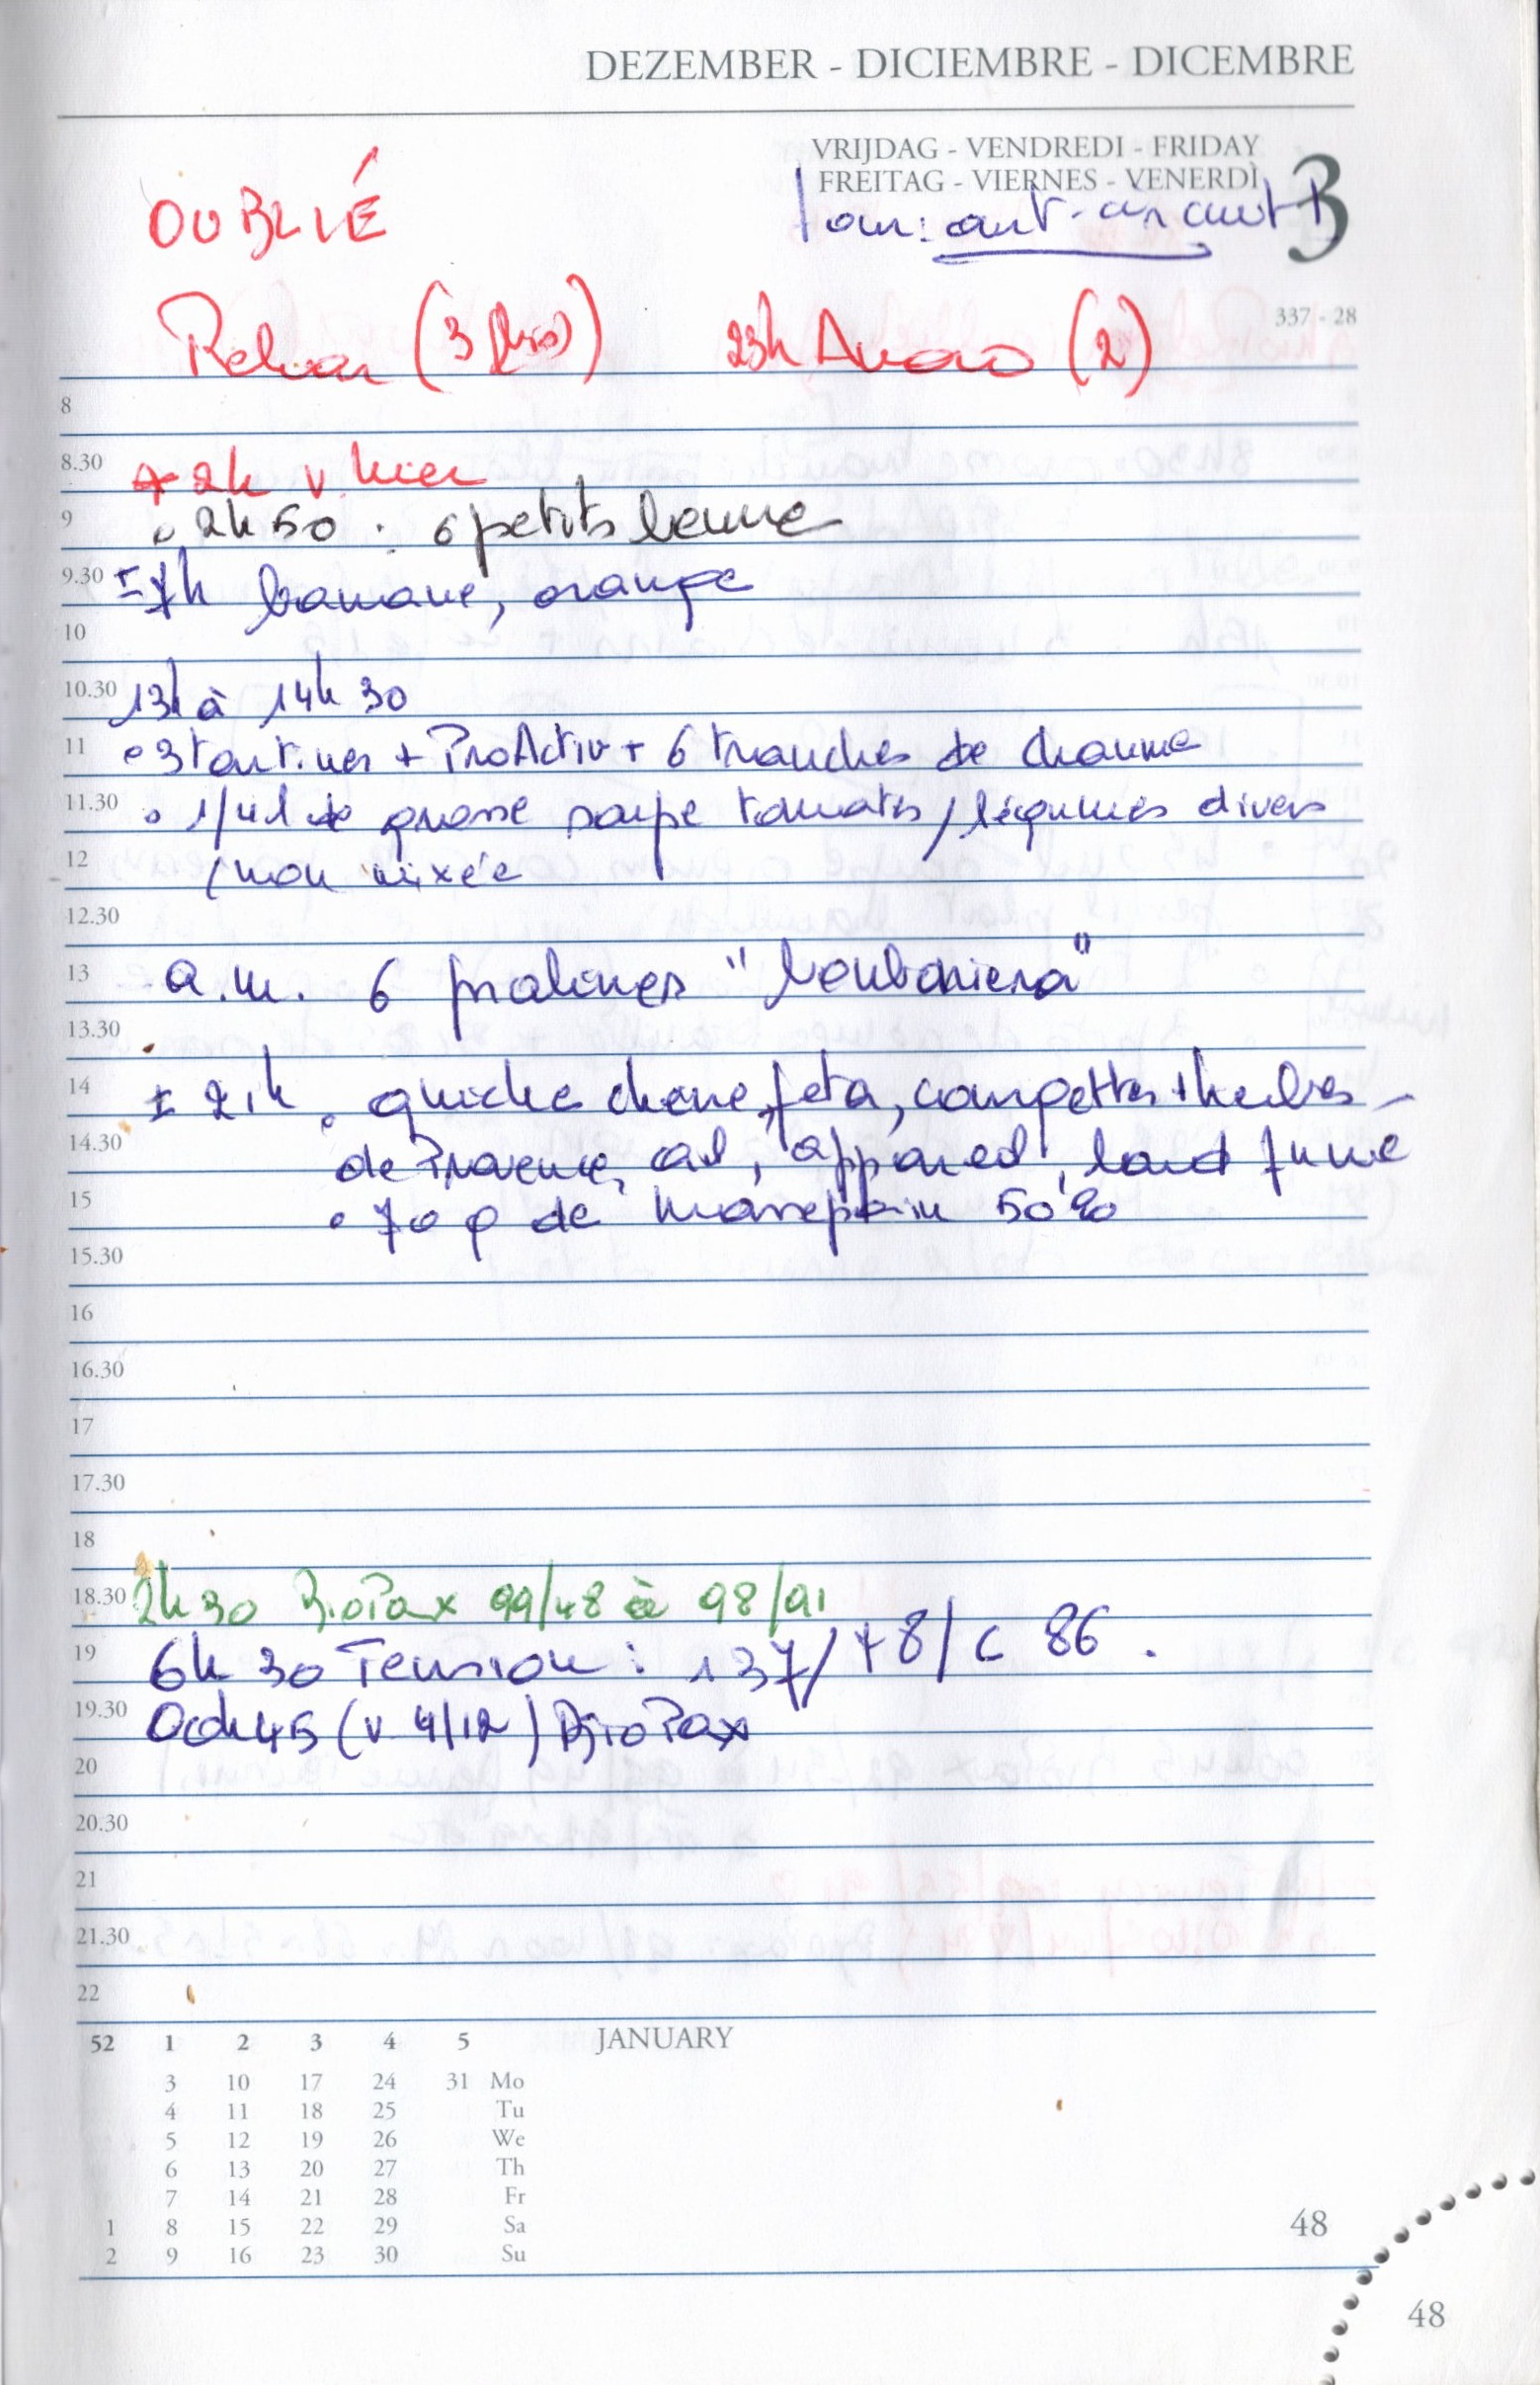 DEZEMBER - DICIEMBRE - DICEMBRE
VRIJDAG - VENDREDI - FRIDAY
FREITAG - VIERNES - VENERDÌ
3
OUBLIÉ
337 - 28
(3 23h (2)
8
8.30 2h v. hier
9 2h50 : 6 petits beurre
9.30 ± 7h banane, orange
10
10.30 13h à 14h30
11 • 3 tartines + ProActiv + 6 tranches de chaume
11.30 • 1/4 l de grosse soupe tomates / légumes divers
12 (non mixée
12.30
13 a.m. 6 pralines "
13.30
14 ± 21h • quiche chèvre, feta, courgettes + herbes
14.30 de Provence, ail, appareil, lard fumé
15 • 70 g de massepain 50%
15.30
16
16.30
17
17.30
18
18.30 2h30 BioPax 99/48 à 98/91
19 6h30 Tension : 137/78/c 86.
19.30 00h45 (v 4/12) BioPax
20
20.30
21
21.30
22
52 1 2 3 4 5 JANUARY
3 10 17 24 31 Mo
4 11 18 25 Tu
5 12 19 26 We
6 13 20 27 Th
7 14 21 28 Fr
1 8 15 22 29 Sa
2 9 16 23 30 Su
48
48